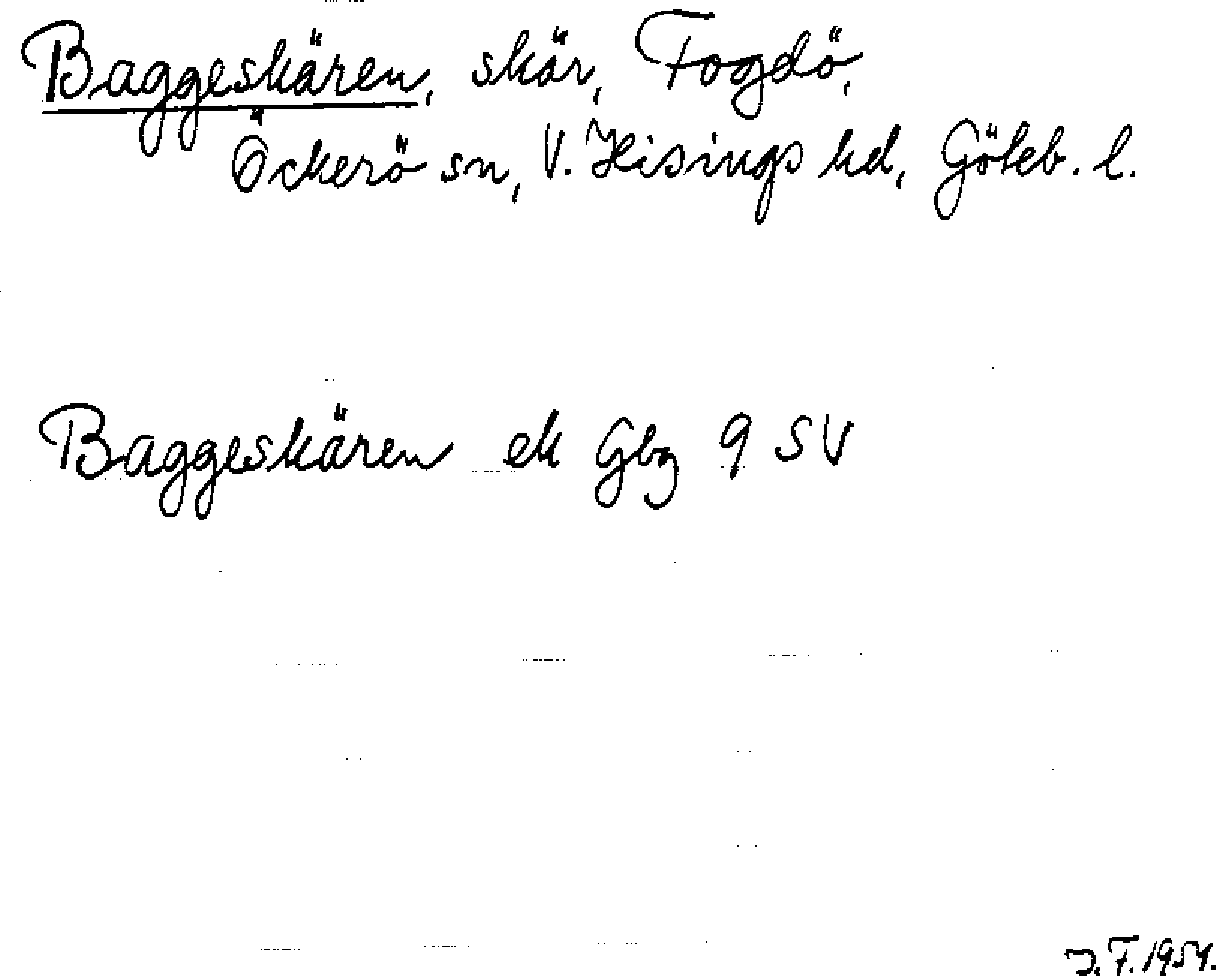 Baggeskären, skär, Fogdö,
Öckerö sn, V. Hisings hd, Göteb. l.
Baggeskären ek Gbg 9 SV
J.F. 1954.